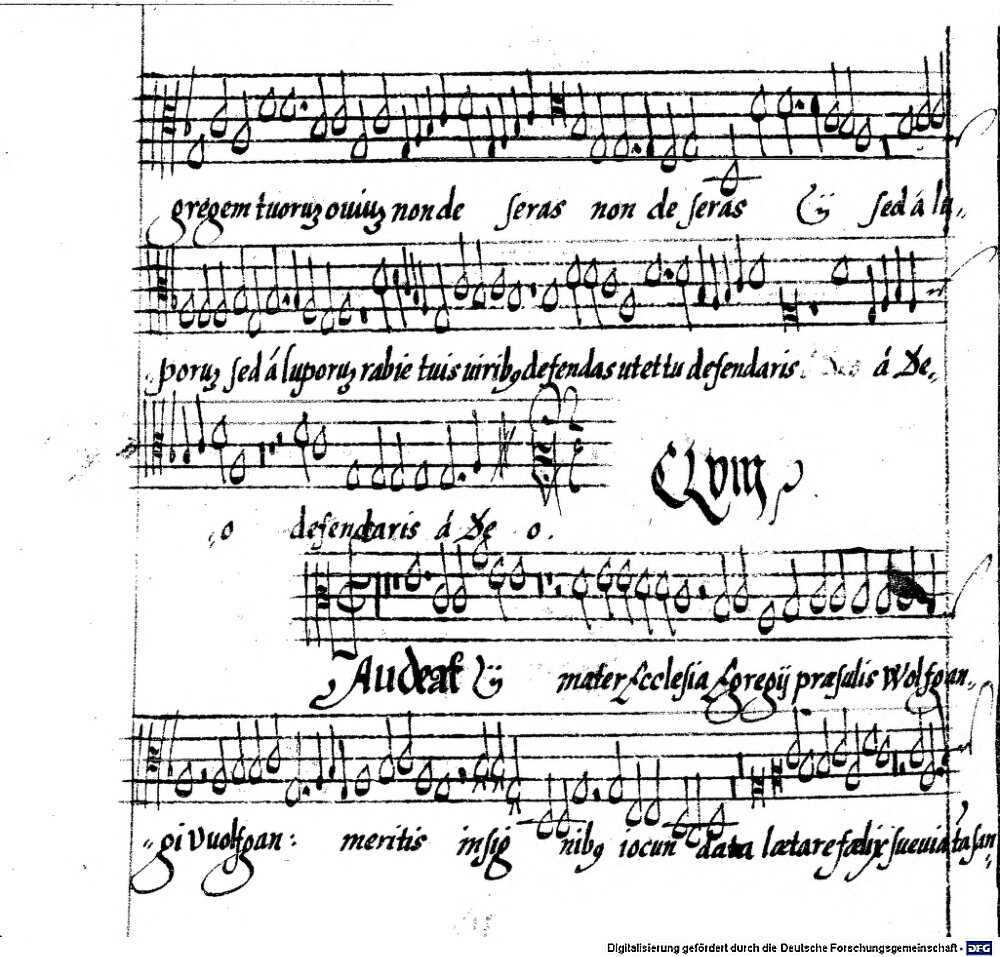 gregem tuoruʒ ouiuʒ non de seras non de seras ij sed á lu„
„poruʒ sed á luporuʒ rabie tuis uiribꝯ defendas ut et tu defendaris á De„
„o defendaris á De o.
Audeat ij mater Ecclesia Egregij præsulis Wolfgan„
„gi Vuolfgan: meritis insig nibꝯ iocun data lætare fælix sueuia ta san„
Digitalisierung gefördert durch die Deutsche Forschungsgemeinschaft - DFG